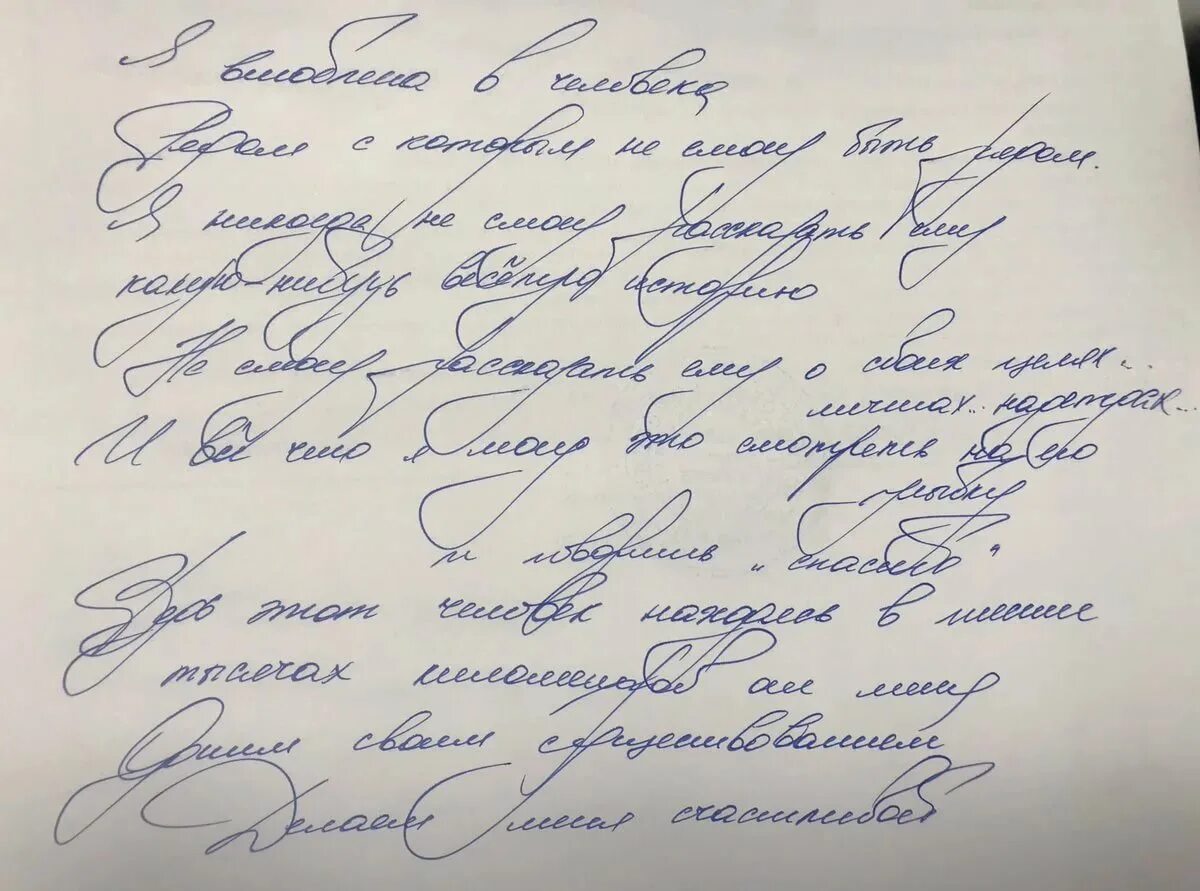 Я влюблена в человека
Рядом с которым не смогу быть рядом.
Я никогда не смогу рассказать ему
какую-нибудь весёлую историю
Не смогу рассказать ему о своих целях...
мечтах... надеждах...
И всё что я могу это смотреть на его
улыбку
и говорить "спасибо"
Ведь этот человек находясь в
тысячах километров от меня
Одним своим существованием
Делает меня счастливой